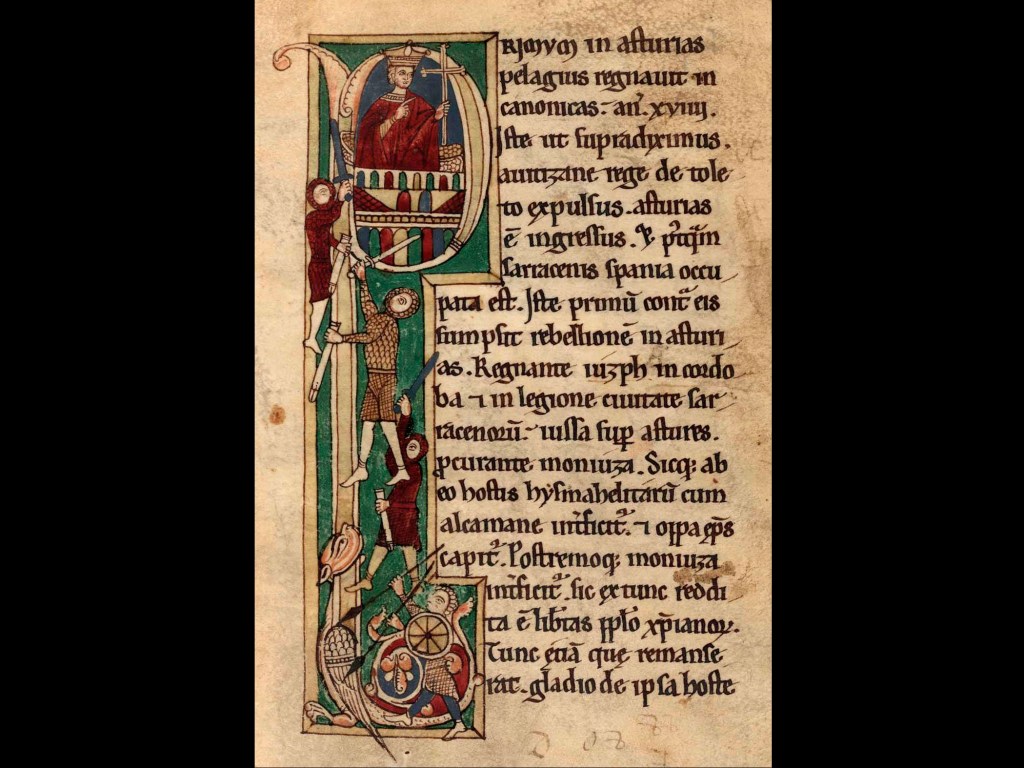 PRIMUM in asturias
pelagius regnauit in
canonicas. an̄. xviiij.
Iste ut supradiximus.
a uitizane rege de tole
to expulsus. asturias
ē ingressus. & p̄tqͣm
sarracenis spania occu
pata est. Iste primū contͣ eis
sumpsit rebellionē in asturi
as. Regnante iuzph in cordo
ba ⁊ in legione ciuitate sar
racenorū. iussa sup̄ astures.
ꝓcurante moniuza. Sicq; ab
eo hostis hysmahelitarū cum
alcamane int̄ficit᷑. ⁊ oppa ep̄s
capit᷑. Postremoq; moniuza
int̄ficit᷑. sic ex tunc reddi
ta ē lib̄tas pp̄lo xp̄ianoꝝ.
Tunc etiā quę remanse
rat. gladio de ipsa hoste